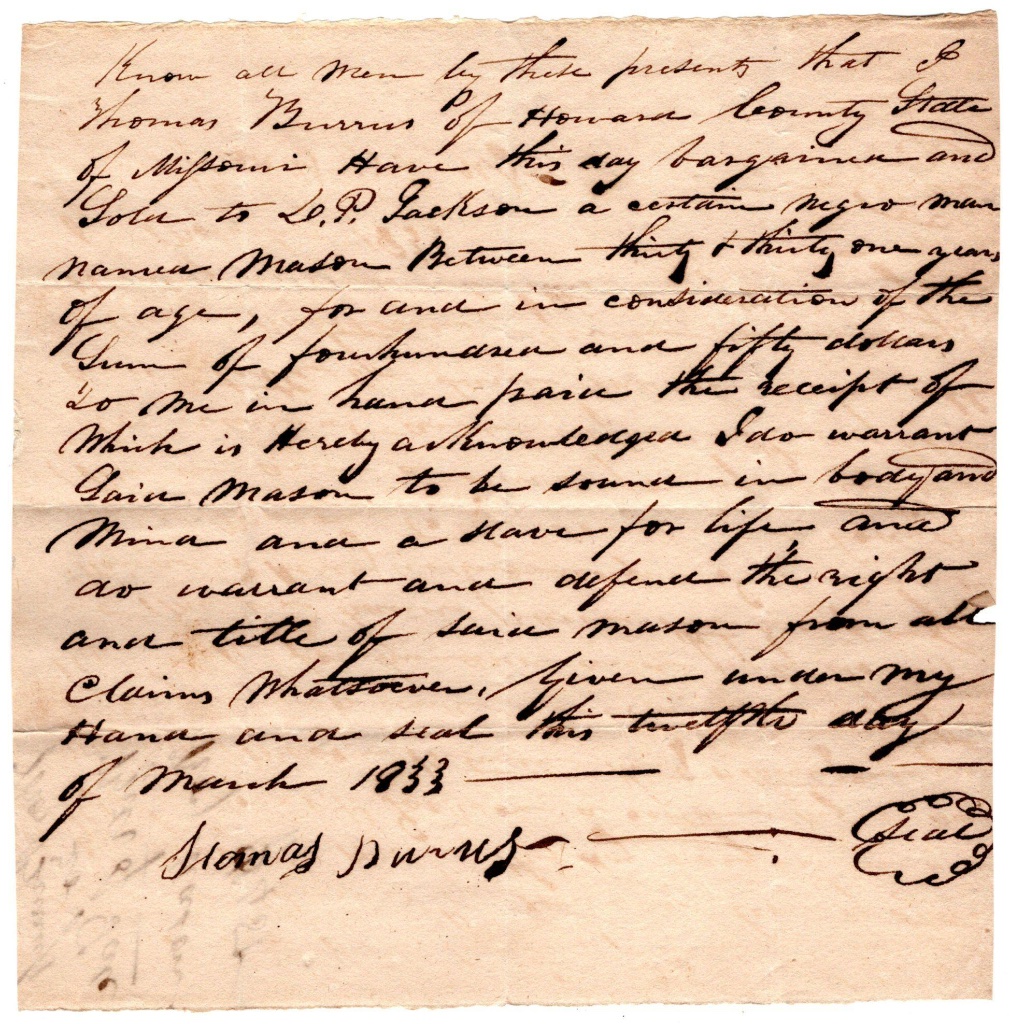 Know all men by these presents that I
Thomas Burrus of Howard County State
of Missouri Have this day bargained and
Sold to D. P. Jackson a certain negro man
named Mason Between thirty & thirty one years
of age, for and in consideration of the
Sum of fourhundred and fifty dollars
To me in hand paid the receipt of
Which is Hereby acknowledged I do warrant
Said Mason to be sound in body and
Mind and a slave for life, and
do warrant and defend the right
and title of said mason from all
Claims Whatsoever, Given under my
Hand and seal this twelfth day
of March 1833
Thomas Burrus Seal